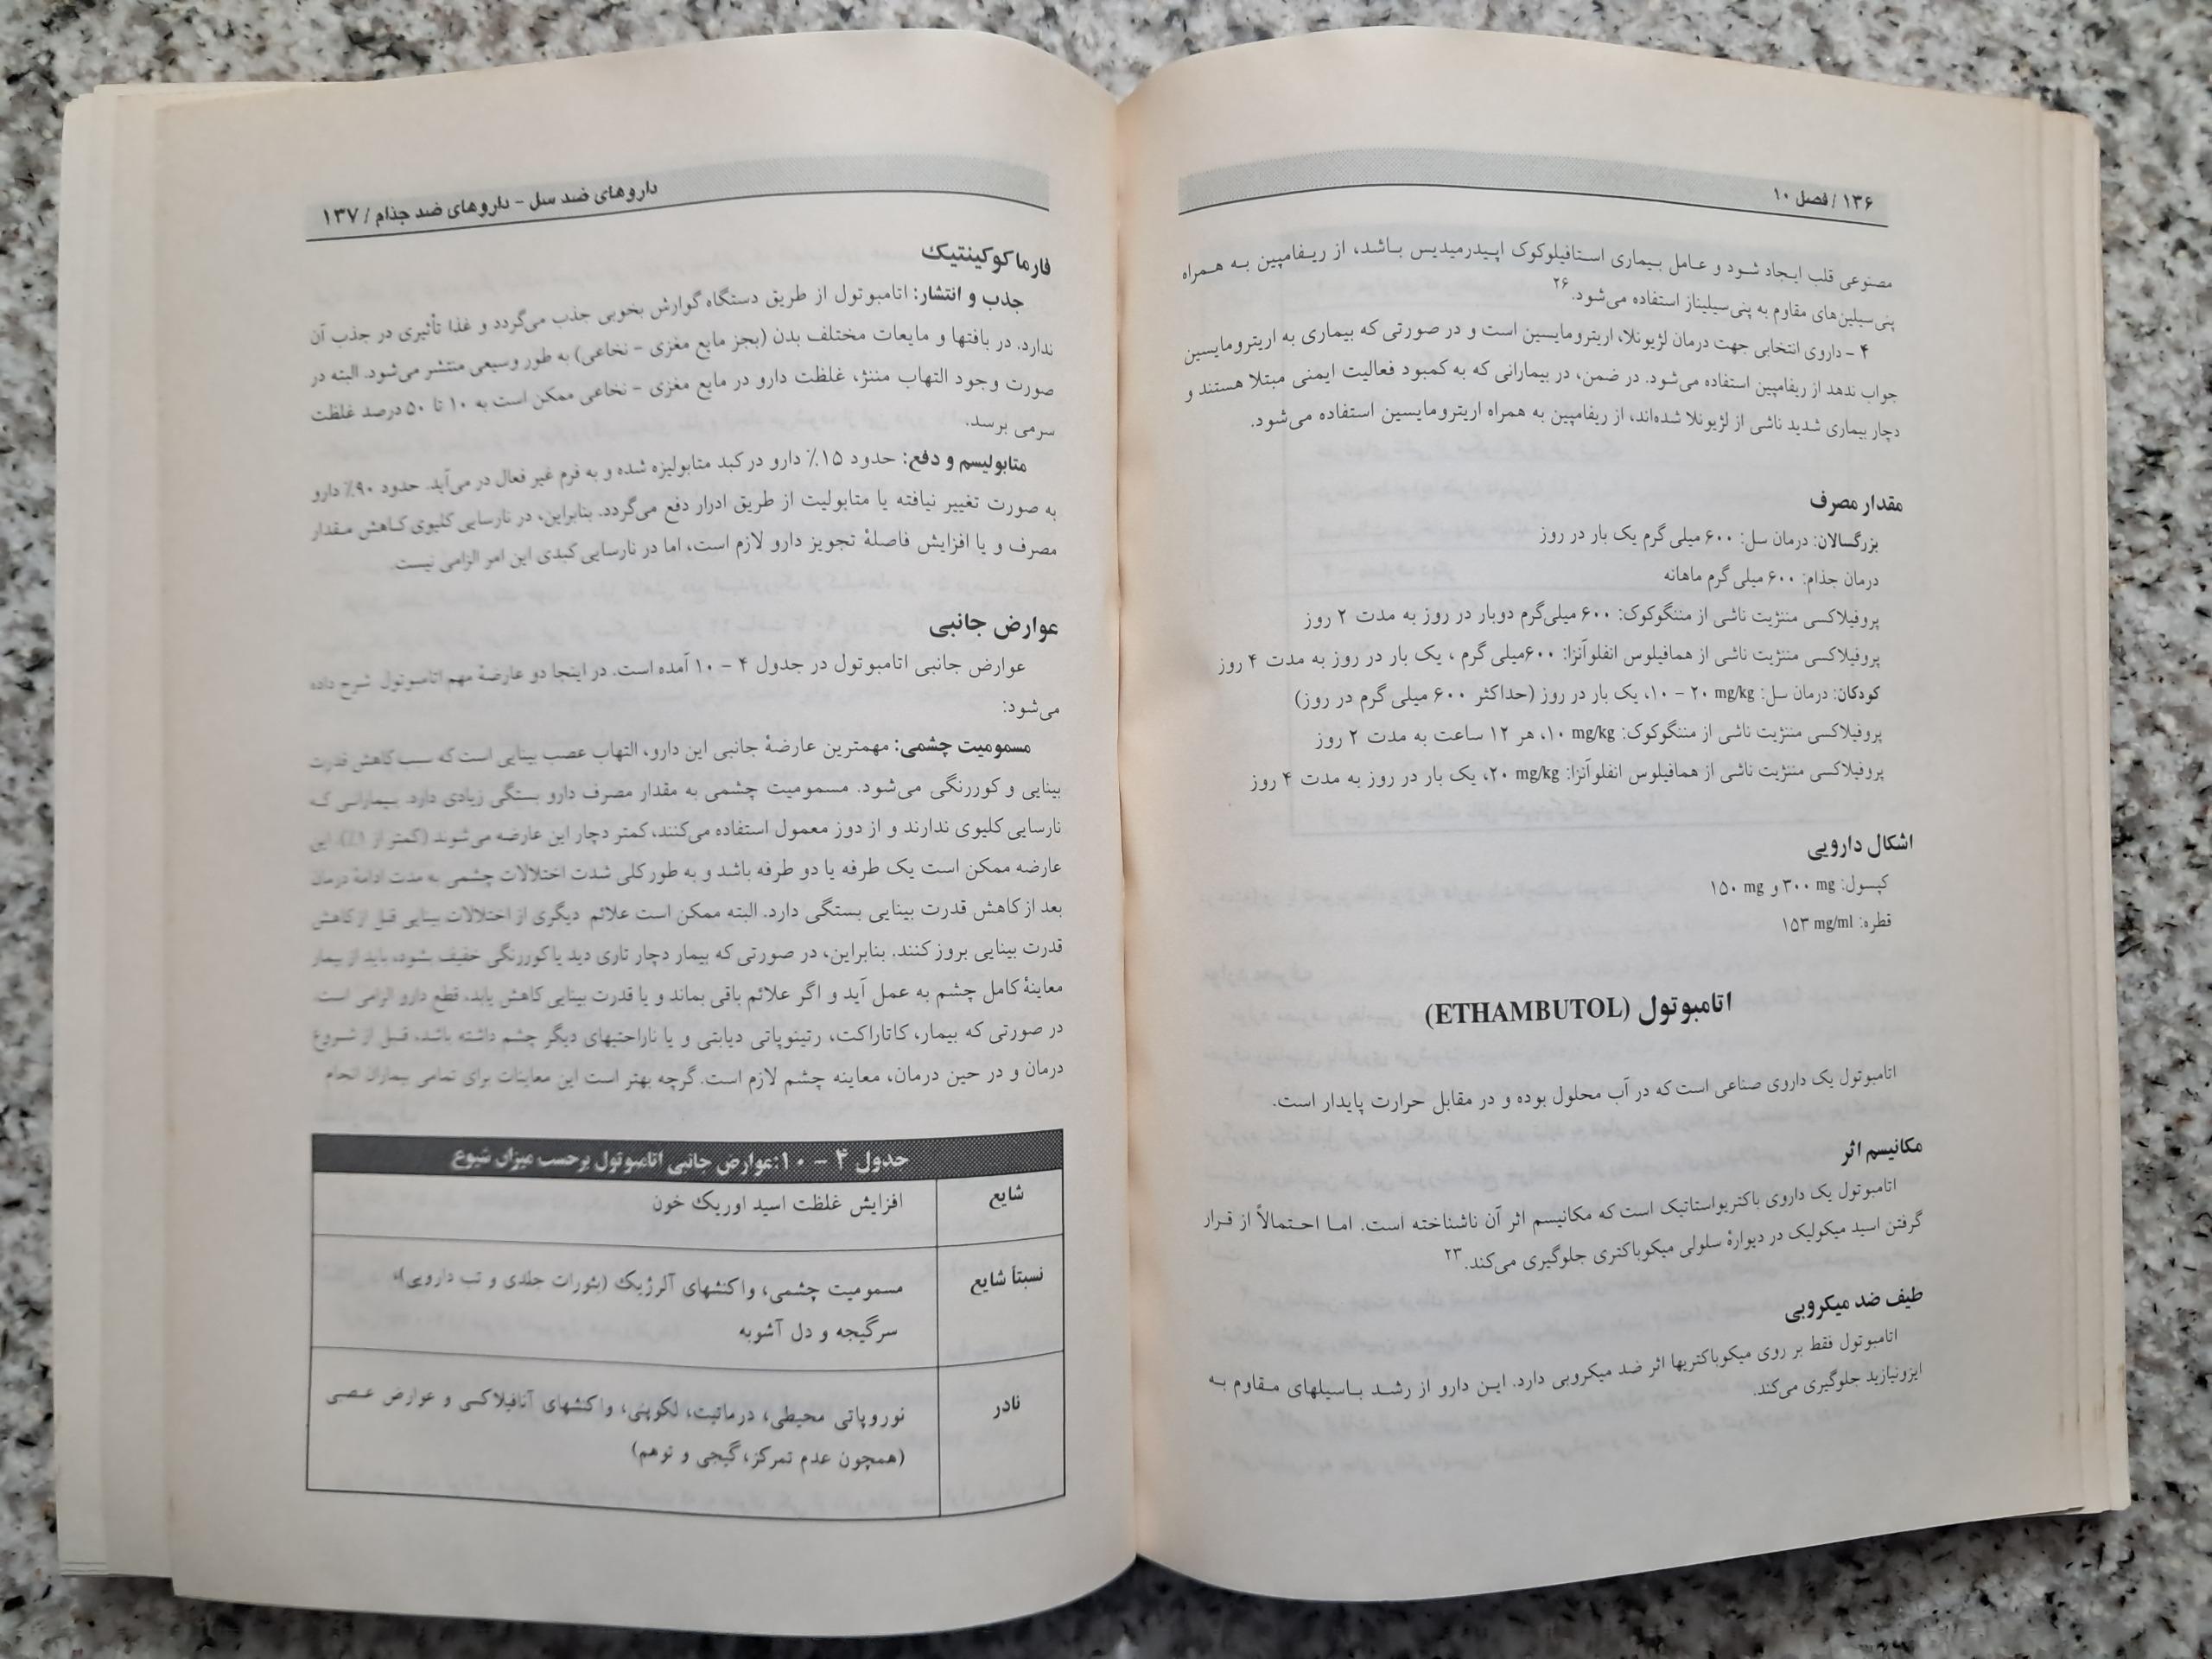 ۱۳۶ / فصل ۱۰
مصنوعی قلب ایجاد شود و عامل بیماری استافیلوکوک اپیدرمیدیس باشد، از ریفامپین به همراه
پنی‌سیلین‌های مقاوم به پنی‌سیلیناز استفاده می‌شود.۲۶
۴ - داروی انتخابی جهت درمان لژیونلا، اریترومایسین است و در صورتی که بیماری به اریترومایسین
جواب ندهد از ریفامپین استفاده می‌شود. در ضمن، در بیمارانی که به کمبود فعالیت ایمنی مبتلا هستند و
دچار بیماری شدید ناشی از لژیونلا شده‌اند، از ریفامپین به همراه اریترومایسین استفاده می‌شود.
مقدار مصرف
بزرگسالان: درمان سل: ۶۰۰ میلی گرم یک بار در روز
درمان جذام: ۶۰۰ میلی گرم ماهانه
پروفیلاکسی مننژیت ناشی از مننگوکوک: ۶۰۰ میلی‌گرم دوبار در روز به مدت ۲ روز
پروفیلاکسی مننژیت ناشی از همافیلوس انفلوآنزا: ۶۰۰میلی گرم ، یک بار در روز به مدت ۴ روز
کودکان: درمان سل: ۱۰ - ۲۰ mg/kg، یک بار در روز (حداکثر ۶۰۰ میلی گرم در روز)
پروفیلاکسی مننژیت ناشی از مننگوکوک: ۱۰ mg/kg، هر ۱۲ ساعت به مدت ۲ روز
پروفیلاکسی مننژیت ناشی از همافیلوس انفلوآنزا: ۲۰ mg/kg، یک بار در روز به مدت ۴ روز
اشکال دارویی
کپسول: ۳۰۰ mg و ۱۵۰ mg
قطره: ۱۵۳ mg/ml
اتامبوتول (ETHAMBUTOL)
اتامبوتول یک داروی صناعی است که در آب محلول بوده و در مقابل حرارت پایدار است.
مکانیسم اثر
اتامبوتول یک داروی باکتریواستاتیک است که مکانیسم اثر آن ناشناخته است. اما احتمالاً از قرار
گرفتن اسید میکولیک در دیوارهٔ سلولی میکوباکتری جلوگیری می‌کند.۲۳
طیف ضد میکروبی
اتامبوتول فقط بر روی میکوباکتریها اثر ضد میکروبی دارد. این دارو از رشد باسیلهای مقاوم به
ایزونیازید جلوگیری می‌کند.
داروهای ضد سل - داروهای ضد جذام / ۱۳۷
فارماکوکینتیک
جذب و انتشار: اتامبوتول از طریق دستگاه گوارش بخوبی جذب می‌گردد و غذا تأثیری در جذب آن
ندارد. در بافتها و مایعات مختلف بدن (بجز مایع مغزی - نخاعی) به طور وسیعی منتشر می‌شود. البته در
صورت وجود التهاب مننژ، غلظت دارو در مایع مغزی - نخاعی ممکن است به ۱۰ تا ۵۰ درصد غلظت
سرمی برسد.
متابولیسم و دفع: حدود ۱۵٪ دارو در کبد متابولیزه شده و به فرم غیر فعال در می‌آید. حدود ۹۰٪ دارو
به صورت تغییر نیافته یا متابولیت از طریق ادرار دفع می‌گردد. بنابراین، در نارسایی کلیوی کاهش مقدار
مصرف و یا افزایش فاصلهٔ تجویز دارو لازم است، اما در نارسایی کبدی این امر الزامی نیست.
عوارض جانبی
عوارض جانبی اتامبوتول در جدول ۴ - ۱۰ آمده است. در اینجا دو عارضهٔ مهم اتامبوتول شرح داده
می‌شود:
مسمومیت چشمی: مهمترین عارضهٔ جانبی این دارو، التهاب عصب بینایی است که سبب کاهش قدرت
بینایی و کوررنگی می‌شود. مسمومیت چشمی به مقدار مصرف دارو بستگی زیادی دارد. بیمارانی که
نارسایی کلیوی ندارند و از دوز معمول استفاده می‌کنند، کمتر دچار این عارضه می‌شوند (کمتر از ۱٪). این
عارضه ممکن است یک طرفه یا دو طرفه باشد و به طور کلی شدت اختلالات چشمی به مدت ادامهٔ درمان
بعد از کاهش قدرت بینایی بستگی دارد. البته ممکن است علائم دیگری از اختلالات بینایی قبل از کاهش
قدرت بینایی بروز کنند. بنابراین، در صورتی که بیمار دچار تاری دید یا کوررنگی خفیف بشود، باید از بیمار
معاینهٔ کامل چشم به عمل آید و اگر علائم باقی بماند و یا قدرت بینایی کاهش یابد، قطع دارو الزامی است.
در صورتی که بیمار، کاتاراکت، رتینوپاتی دیابتی و یا ناراحتیهای دیگر چشم داشته باشد، قبل از شروع
درمان و در حین درمان، معاینه چشم لازم است. گرچه بهتر است این معاینات برای تمامی بیماران انجام
جدول ۴ - ۱۰: عوارض جانبی اتامبوتول برحسب میزان شیوع
شایع افزایش غلظت اسید اوریک خون
نسبتاً شایع مسمومیت چشمی، واکنشهای آلرژیک (بثورات جلدی و تب دارویی)،
سرگیجه و دل آشوبه
نادر نوروپاتی محیطی، درماتیت، لکوپنی، واکنشهای آنافیلاکسی و عوارض عصبی
(همچون عدم تمرکز، گیجی و توهم)